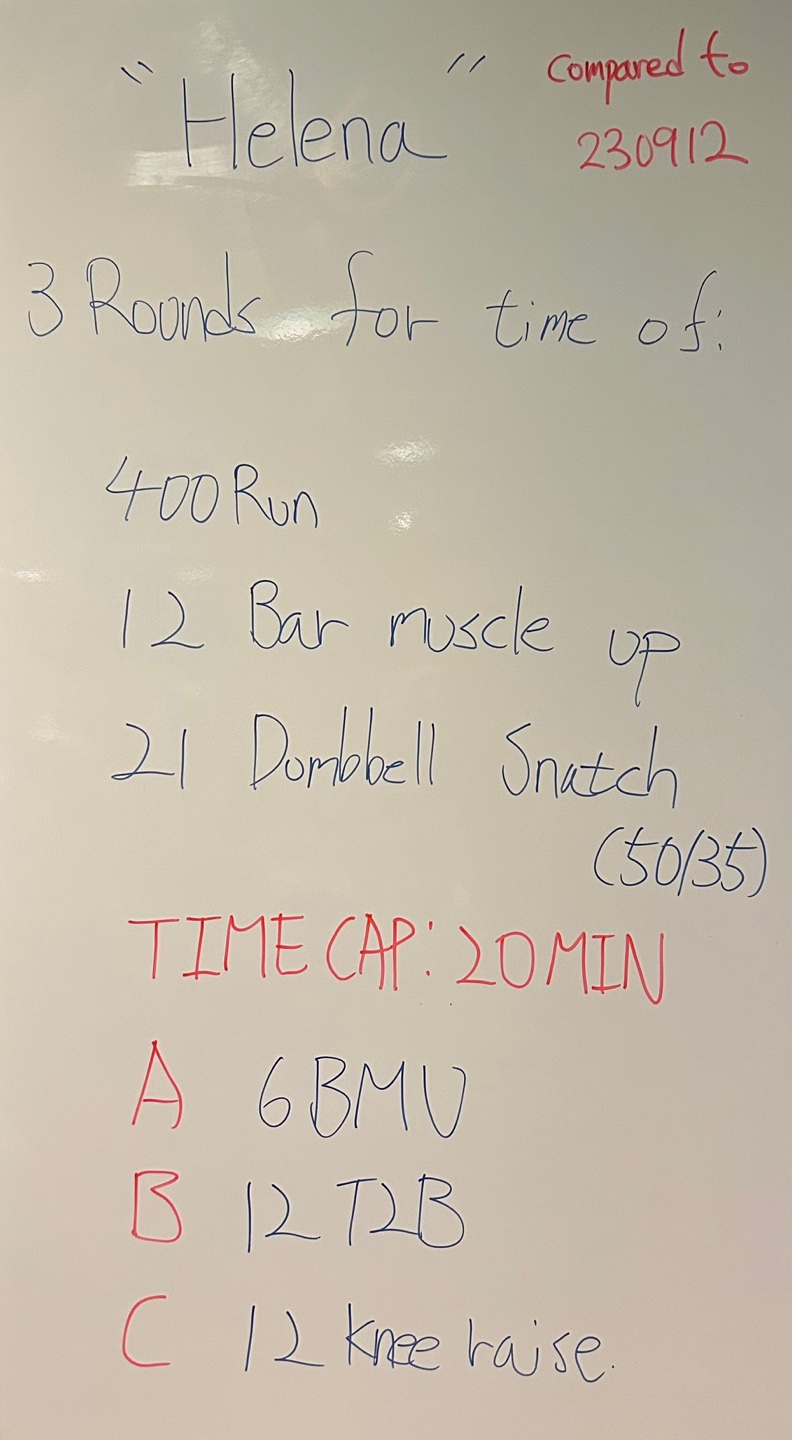 "Helena"
Compared to
230912
3 Rounds for time of:
400 Run
12 Bar muscle up
21 Dumbbell Snatch
(50/35)
TIME CAP: 20 MIN
A 6 BMU
B 12 T2B
C 12 knee raise.